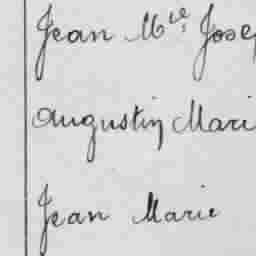 Jean Mce Josep
Augustin Mari
Jean Marie